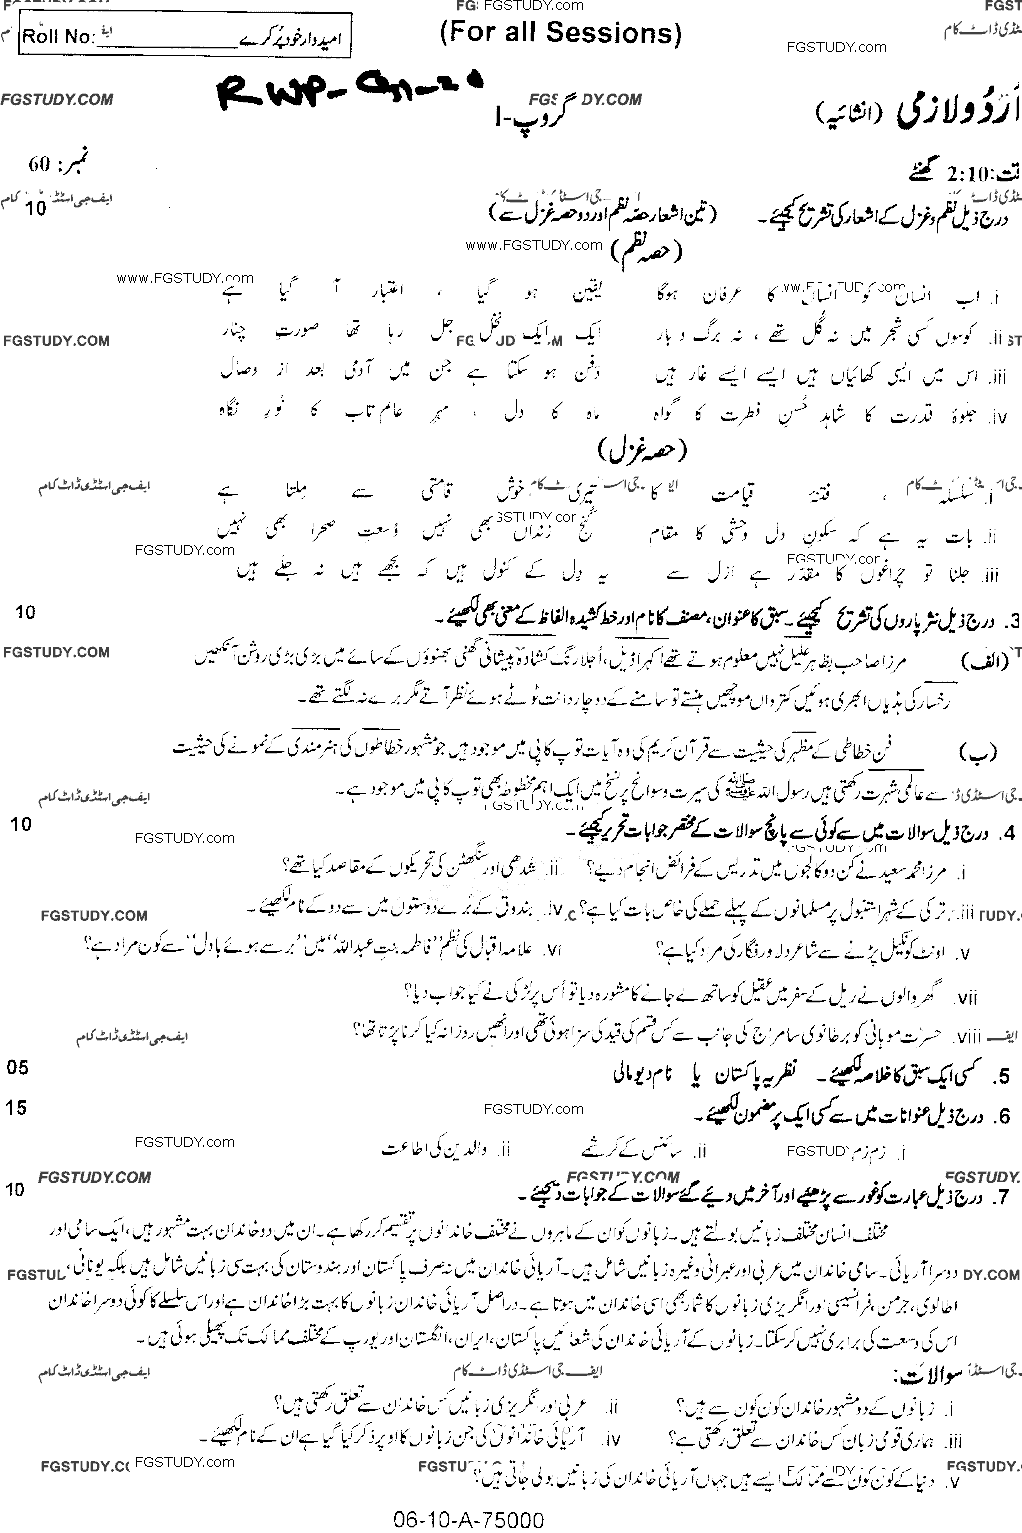 FGSTUDY.COM
Roll No: امیدوار خود پُر کرے
(For all Sessions)
FGSTUDY.com
RWP-G1-20
اُردُو لازمی (انشائیہ) گروپ-I
2:10 گھنٹے نمبر: 60
درج ذیل نظم و غزل کے اشعار کی تشریح کیجیئے۔ (تین اشعار حصہ نظم اور دو حصہ غزل سے) 10
(حصہ نظم)
i. اب انسان کو انسان کا عرفان ہوگا یقین ہو گیا ، اعتبار آ گیا ہے
ii. کوسوں کسی شجر میں نہ گُل تھے ، نہ برگ و بار ایک ایک نخل جل رہا تھا صورتِ چنار
iii. اس میں ایسی کھائیاں ہیں ایسے ایسے غار ہیں دفن ہو سکتا ہے جن میں آدمی بعد از وصال
iv. جلوۂ قدرت کا شاہد حُسنِ فطرت کا گواہ ماہ کا دل ، مہرِ عالم تاب کا نُورِ نگاہ
(حصہ غزل)
i. سلسلہ ، فتنۂ قیامت کا تیری خوش قامتی سے ملتا ہے
ii. بات یہ ہے کہ سکونِ دل وحشی کا مقام کُنج زنداں بھی نہیں وُسعتِ صحرا بھی نہیں
iii. جلنا تو چراغوں کا مقدّر ہے ازل سے یہ دِل کے کنول ہیں کہ بجھے ہیں نہ جلے ہیں
3. درج ذیل نثر پاروں کی تشریح کیجیئے۔ سبق کا عنوان، مصنف کا نام اور خط کشیدہ الفاظ کے معنی بھی لکھیئے۔ 10
(الف) مرزا صاحب بظاہر علیل نہیں معلوم ہوتے تھے اکہرا ڈیل، اُجلا رنگ کشادہ پیشانی گھنی بھنوؤں کے سائے میں بڑی بڑی روشن آنکھیں
رخسار کی ہڈیاں ابھری ہوئیں کترواں مونچھیں ہنستے تو سامنے کے دو چار دانت ٹوٹے ہوئے نظر آتے مگر برے نہ لگتے تھے۔
(ب) فن خطاطی کے مظہر کی حیثیت سے قرآن کریم کی وہ آیات توپ کاپی میں موجود ہیں جو مشہور خطاطوں کی ہنرمندی کے نمونے کی حیثیت
سے عالمی شہرت رکھتی ہیں رسول اللہ ﷺ کی سیرت و سوانح پر نسخ میں ایک اہم مخطوطہ بھی توپ کاپی میں موجود ہے۔
4. درج ذیل سوالات میں سے کوئی سے پانچ سوالات کے مختصر جوابات تحریر کیجیئے۔ 10
i. مرزا محمد سعید نے کن دو کالجوں میں تدریس کے فرائض انجام دیے؟ ii. شدھی اور سنگھٹن کی تحریکوں کے مقاصد کیا تھے؟
iii. ترکی کے شہر استنبول پر مسلمانوں کے پہلے حملے کی خاص بات کیا ہے؟ iv. بندوقی کے بُرے دوستوں میں سے دو کے نام لکھیئے۔
v. اونٹ کو نکیل پڑنے سے شاعر دلاور فگار کی مراد کیا ہے؟ vi. علامہ اقبال کی نظم "فاطمہ بنتِ عبداللہ" میں "برسے ہوئے بادل" سے کون مراد ہے؟
vii. گھر والوں نے ریل کے سفر میں عقیل کو ساتھ لے جانے کا مشورہ دیا تو اُس پر لڑکی نے کیا جواب دیا؟
viii. حسرت موہانی کو برطانوی سامراج کی جانب سے کس قسم کی قید کی سزا ہوئی تھی اور انھیں روزانہ کیا کرنا پڑتا تھا؟
5. کسی ایک سبق کا خلاصہ لکھیئے۔ نظریہ پاکستان یا نام دیو مالی 05
6. درج ذیل عنوانات میں سے کسی ایک پر مضمون لکھیئے۔ 15
i. زم زم ii. سائنس کے کرشمے iii. والدین کی اطاعت
7. درج ذیل عبارت کو غور سے پڑھیئے اور آخر میں دیئے گئے سوالات کے جوابات دیجیئے۔ 10
مختلف انسان مختلف زبانیں بولتے ہیں۔ زبانوں کو ان کے ماہروں نے مختلف خاندانوں پر تقسیم کر رکھا ہے۔ ان میں دو خاندان بہت مشہور ہیں، ایک سامی اور
دوسرا آریائی۔ سامی خاندان میں عربی اور عبرانی وغیرہ زبانیں شامل ہیں۔ آریائی خاندان میں نہ صرف پاکستان اور ہندوستان کی بہت سی زبانیں شامل ہیں بلکہ یونانی،
اطالوی، جرمن، فرانسیسی اور انگریزی زبانوں کا شمار بھی اسی خاندان میں ہوتا ہے۔ دراصل آریائی خاندان زبانوں کا بہت بڑا خاندان ہے اور اس سلسلے کا کوئی دوسرا خاندان
اس کی وسعت کی برابری نہیں کر سکتا۔ زبانوں کے آریائی خاندان کی شعائیں پاکستان، ایران، انگلستان اور یورپ کے مختلف ممالک تک پھیلی ہوئی ہیں۔
سوالات:
i. زبانوں کے دو مشہور خاندان کون کون سے ہیں؟ ii. عربی اور انگریزی زبانیں کس خاندان سے تعلق رکھتی ہیں؟
iii. ہماری قومی زبان کس خاندان سے تعلق رکھتی ہے؟ iv. آریائی خاندانوں کی جن زبانوں کا اوپر ذکر کیا گیا ہے ان کے نام لکھیئے۔
v. دنیا کے کون کون سے ممالک ایسے ہیں جہاں آریائی خاندان کی زبانیں بولی جاتی ہیں؟
06-10-A-75000